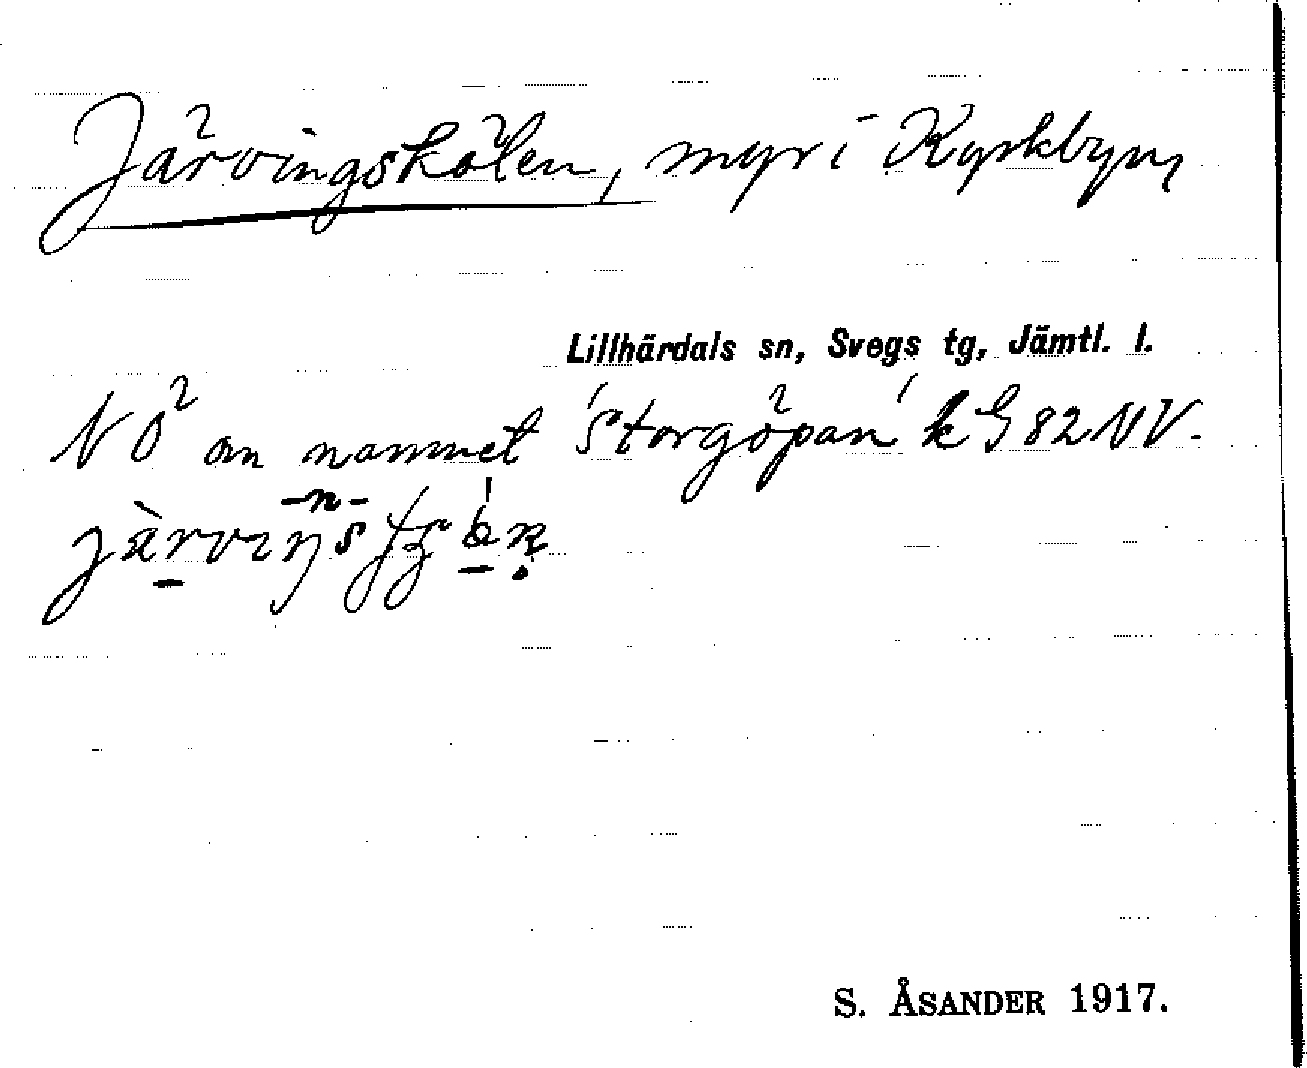 Järvingskölen, myr i Kyrkbyn,
Lillhärdals sn, Svegs tg, Jämtl. l.
NO om namnet 'Storgöpan' k G 82 NV.
-n-
S. ÅSANDER 1917.